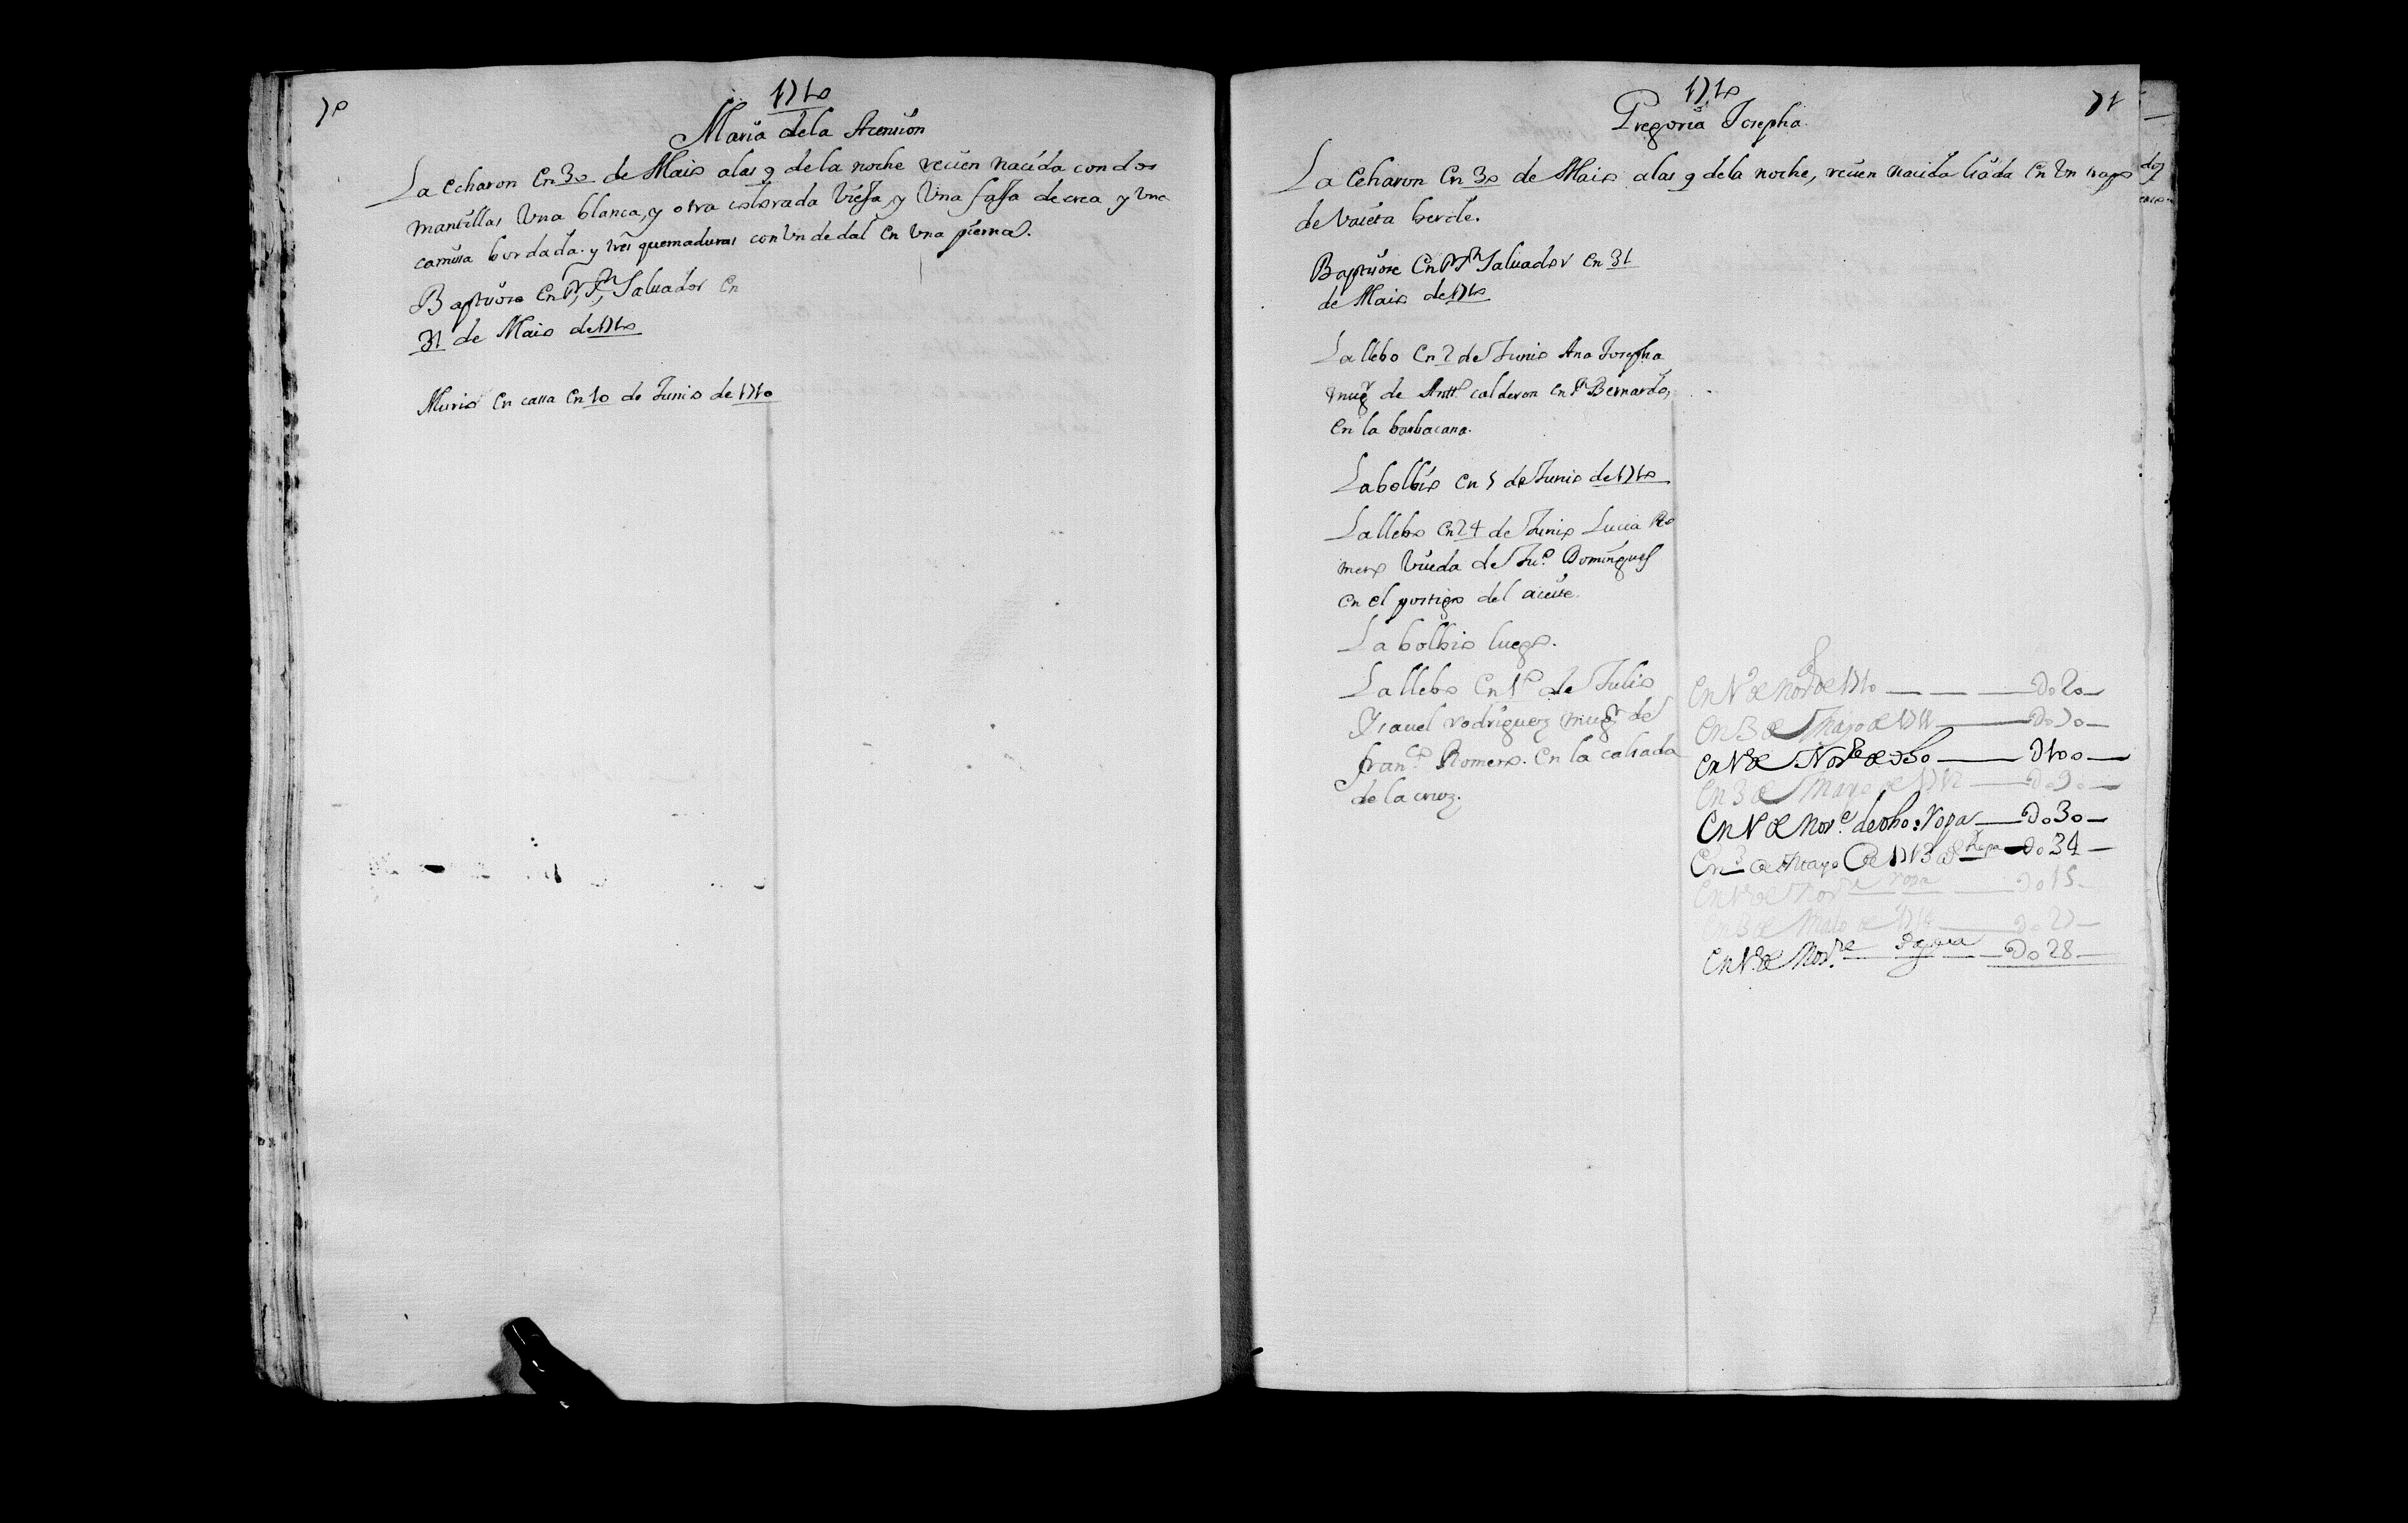 70
1710
Maria de la Acension
La echaron en 30 de Maio a las 9 de la noche recien nacida con dos
mantillas Vna blanca, y otra colorada viessa, y Vna faffa de crea y Vna
camissa bordada. y tres quemaduras con Vn dedal en Vna pierna.
Baptisose en Sr. Sn. Saluador en
31 de Maio de 1710
Murio en cassa en 10 de Junio de 1710
1710
71
Gregoria Josepha
La echaron en 30 de Maio a las 9 de la noche, recien nacida liada en Vn trapo
de Vaieta berde.
Baptisose en Sr. Sn. Saluador en 31
de Maio de 1710
La llebo en 2 de Junio Ana Josepha
mugr. de Antto. calderon en Sn. Bernardo,
en la barbacana.
La bolbio en 5 de Junio de 1710
La llebo en 24 de Junio Lucia Ro
mero Viuda de Juo. Domingues
en el postigo del aceite.
La bolbio luego.
La llebo en 1o. de Julio
Ysauel rodriguez mugr. de
franco. Romero. en la calsada
de la cruz.
En 1o. de Nore. de 1710 — Do 20
En 3 de Mayo de 1711 — Do 70
En 1o. de Nore. de dho — D 100
En 3 de Mayo de 1712 — Do 90
En 1o. de Nore. de dho: ropa — Do 30
En 3 de Mayo de 1713 Ropa — Do 34
En 1o. de Nore. ropa — Do 15
En 3 de Maio de 1714 — Do 27
En 1o. de Nore. — Do 28